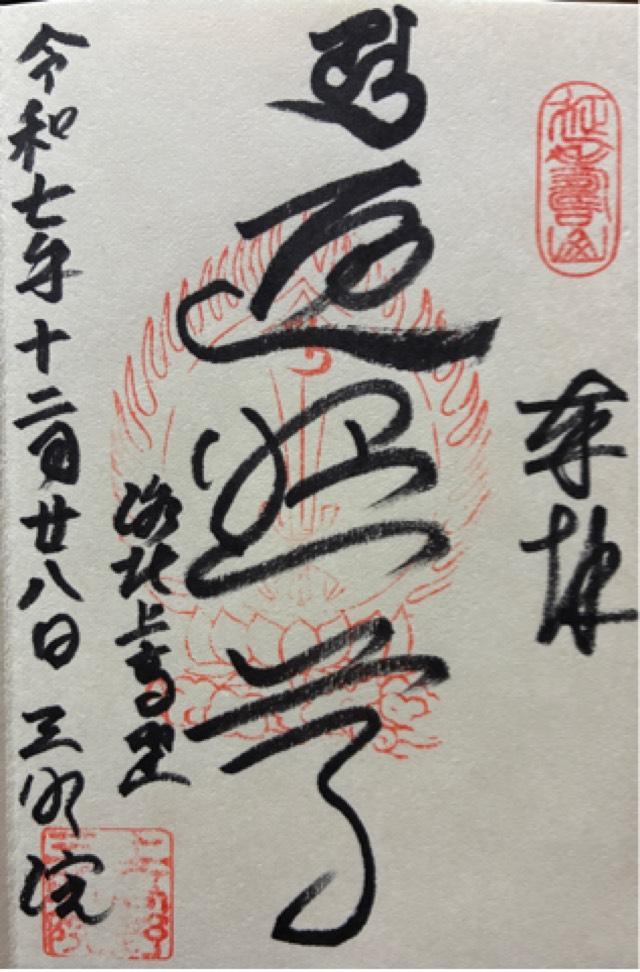 奉拝
遍照尊
洛北上高野
令和七年十二月廿八日 三明院